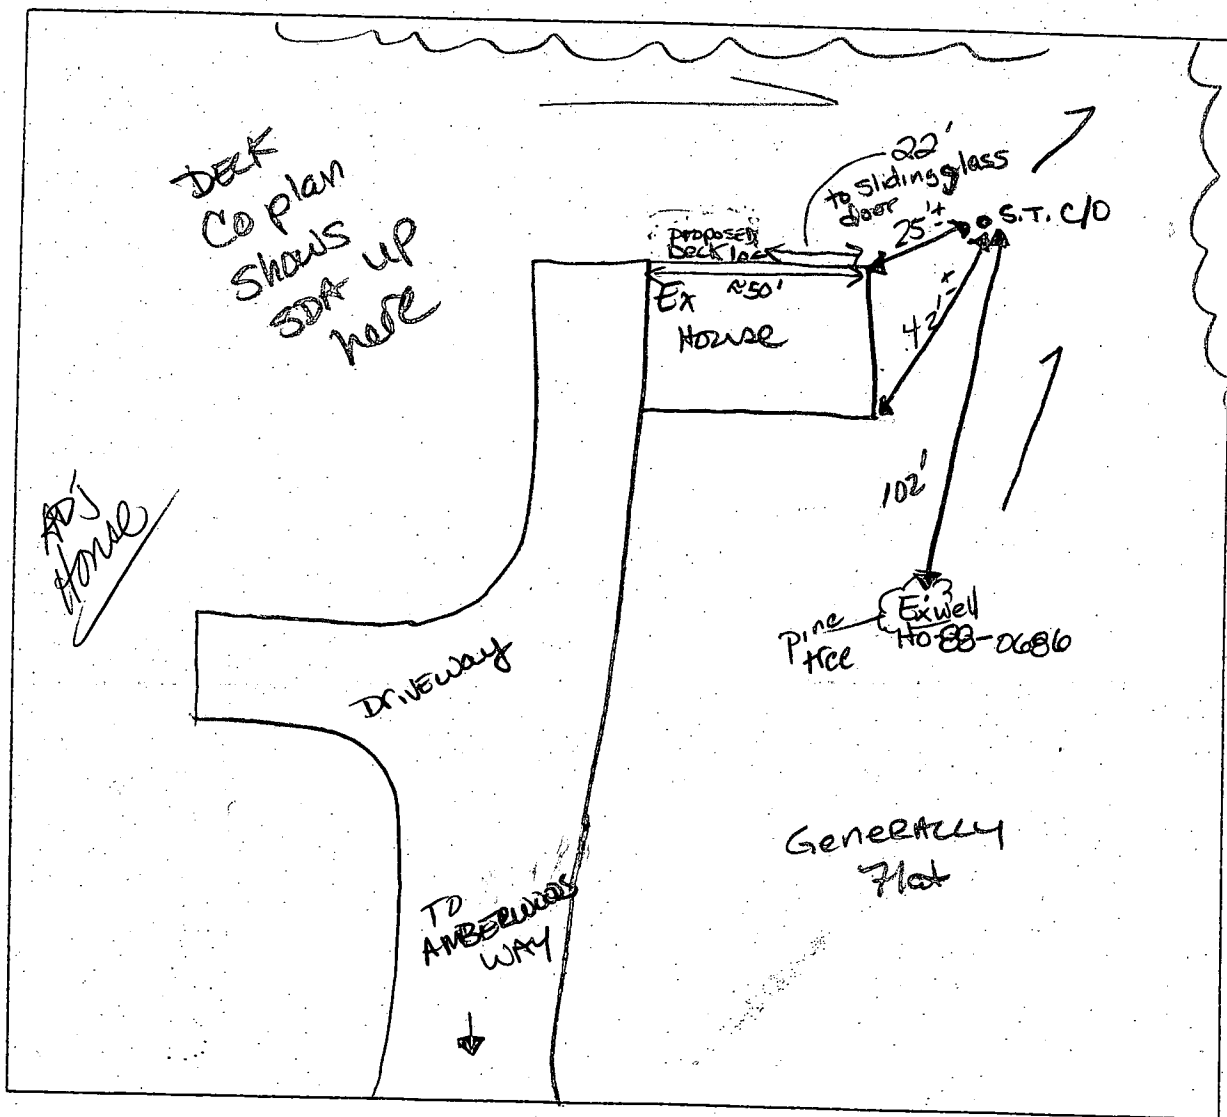 DECK
Co plan
shows
SDA up
here
22'
to sliding glass
door
25'±
S.T. C/O
proposed
Deck loc
≈50'
Ex
House
42'±
102'
ADJ
House
Pine
tree
Ex well
HO-88-0686
DRIVEWAY
GENERALLY
Flat
TO
AMBERWOODS
WAY